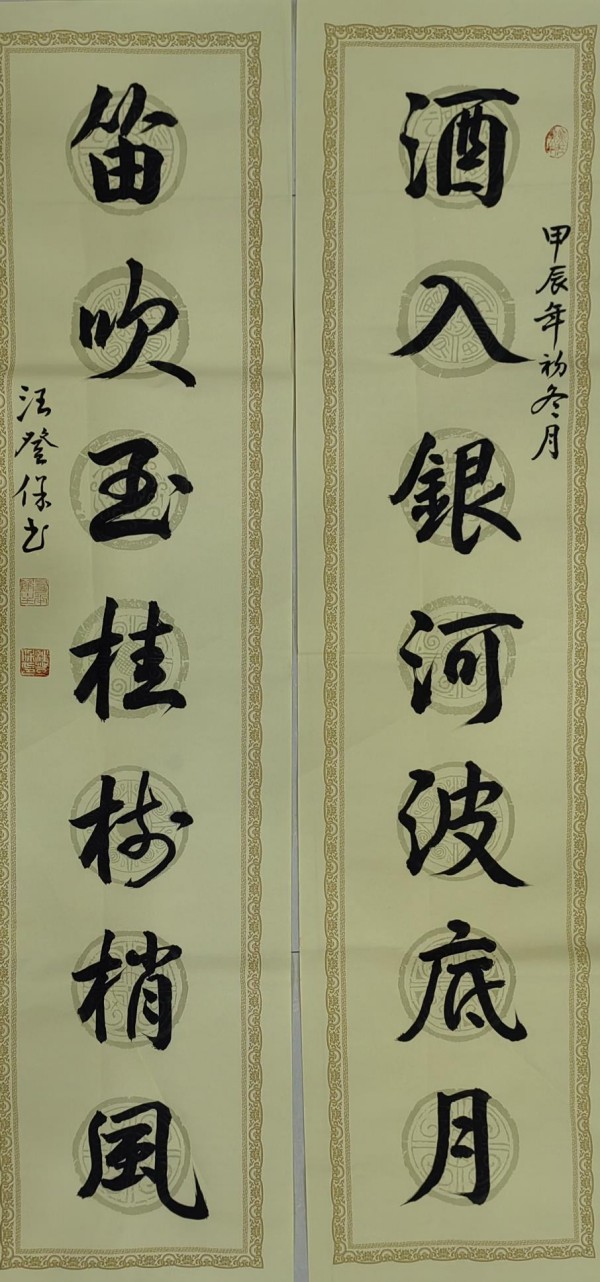 甲辰年初冬月
酒入銀河波底月
笛吹玉桂树梢風
汪登保书